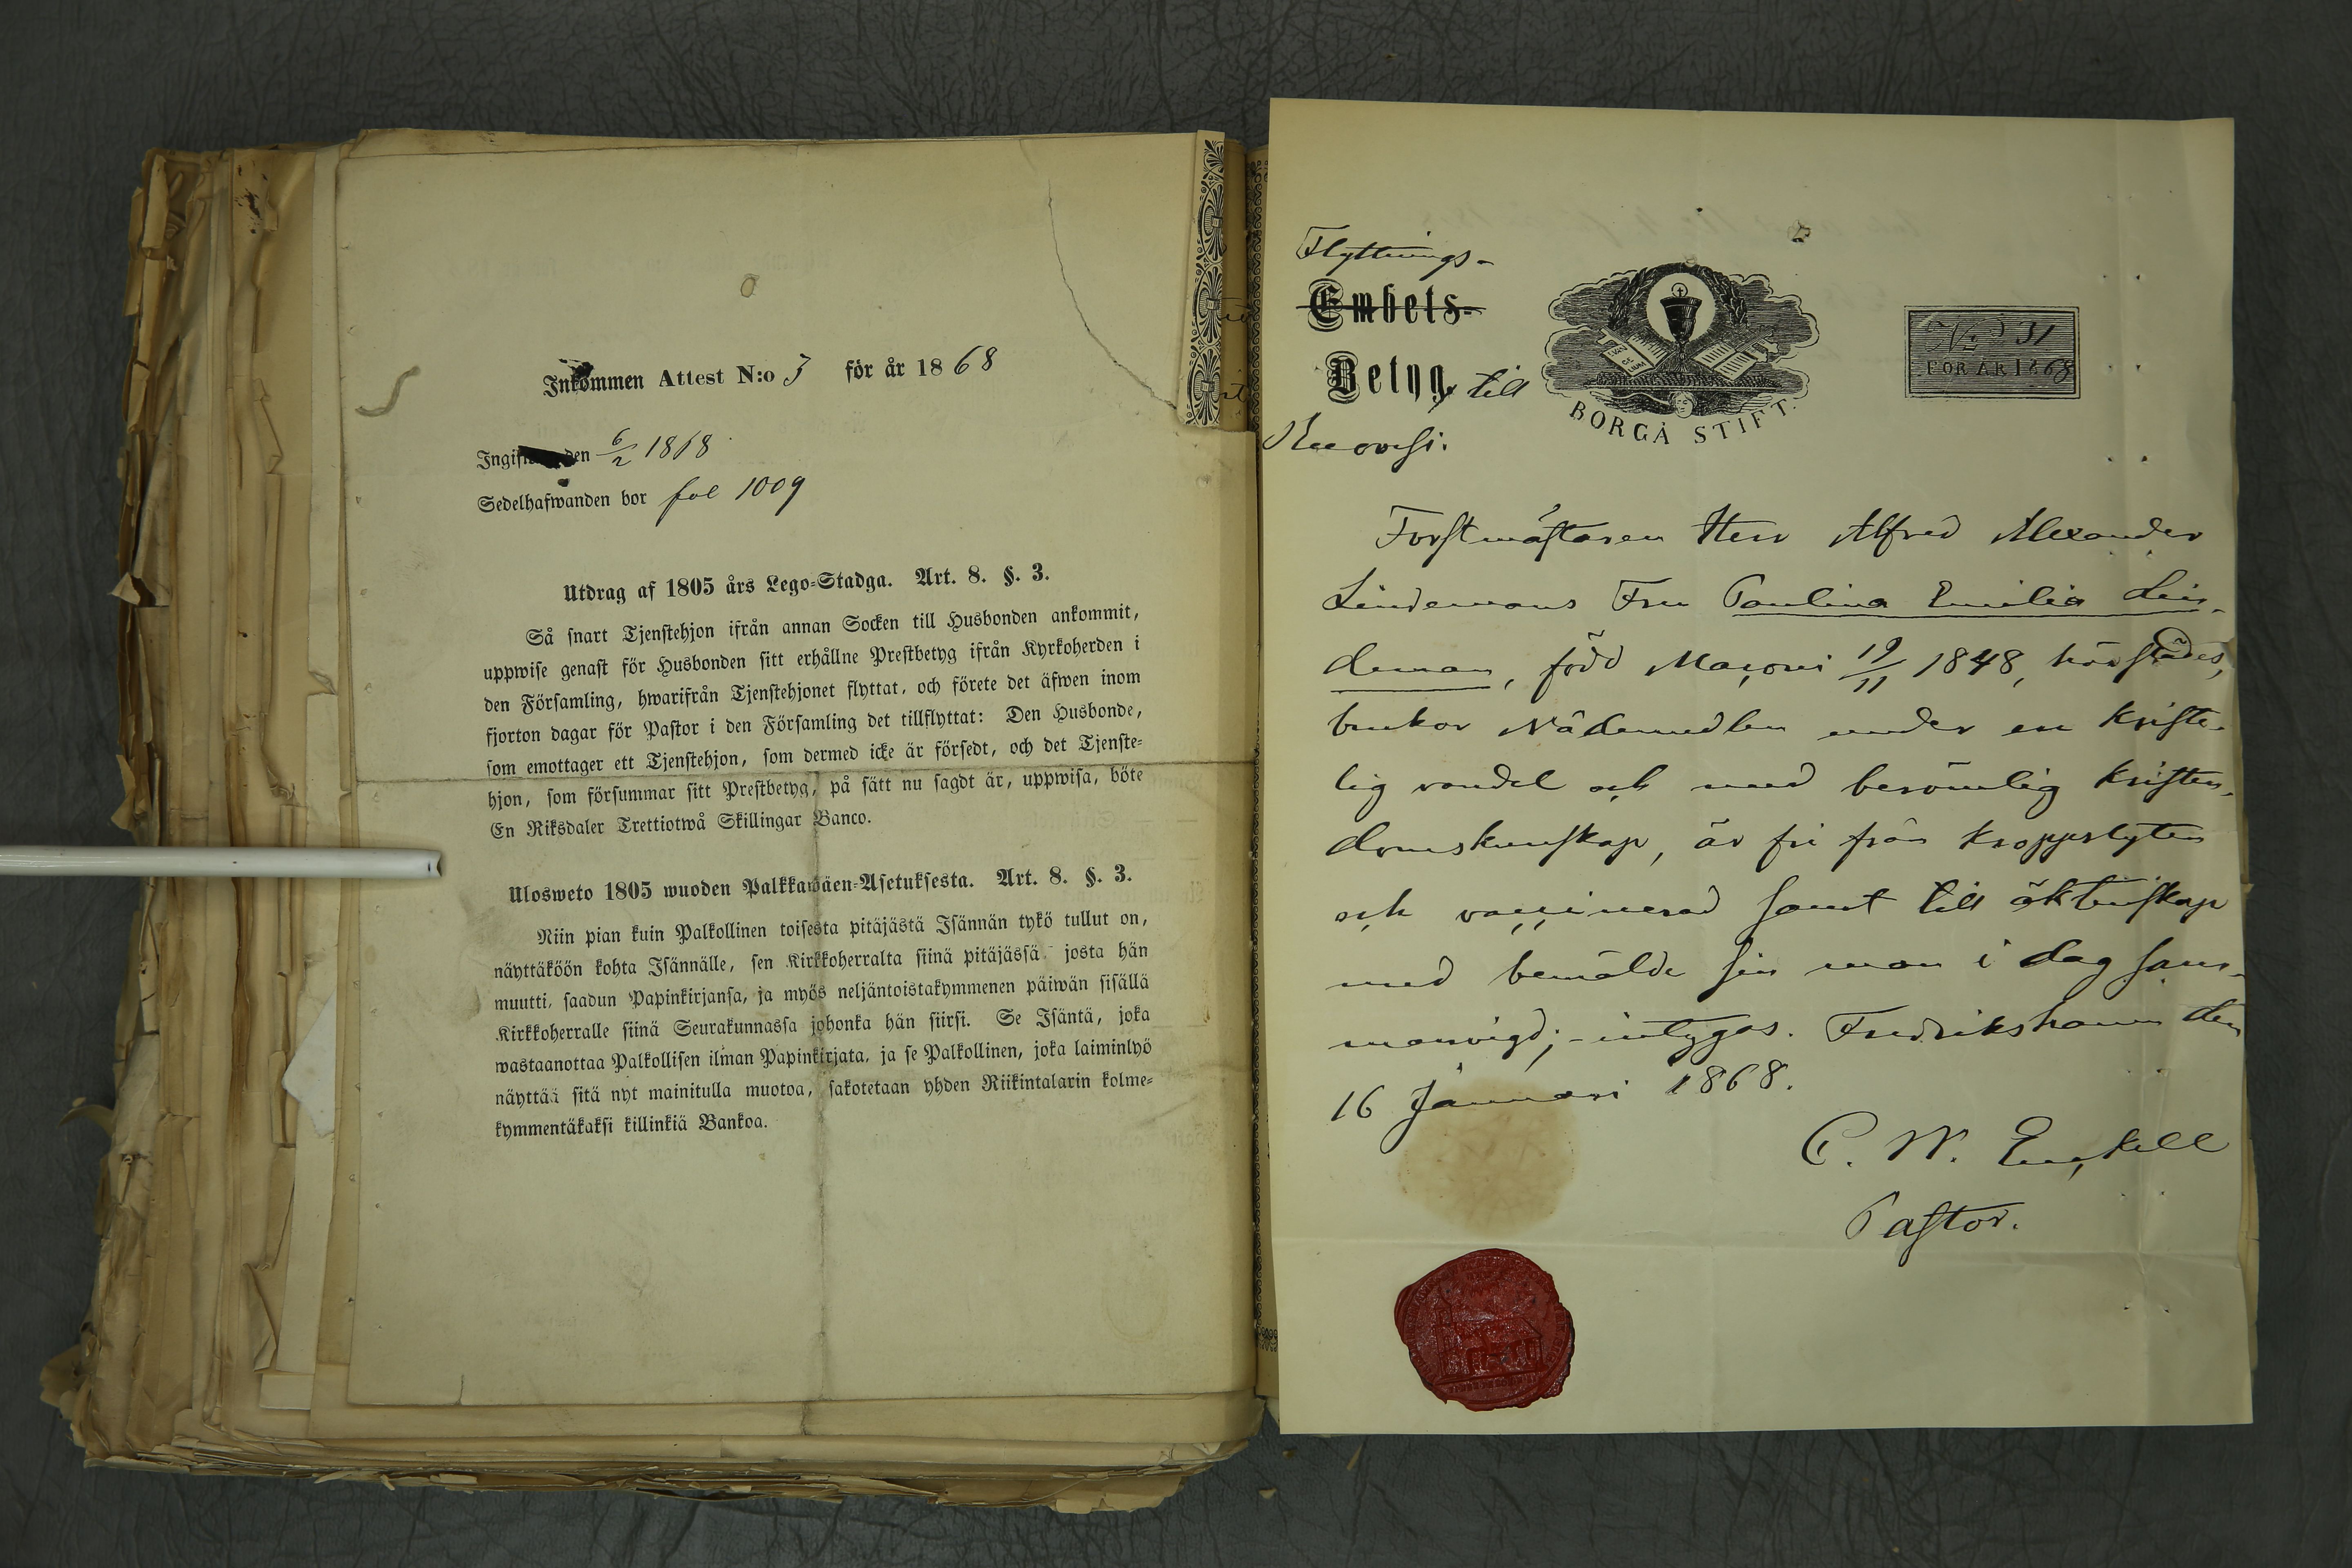 Inkommen Attest N:o 3 för år 1868
den 6/2 1868
Sedelhafwanden bor fol 1009
Utdrag af 1805 års Lego-Stadga. Art. 8. §. 3.
Så snart Tjenstehjon ifrån annan Socken till Husbonden ankommit,
uppwise genast för Husbonden sitt erhållne Prestbetyg ifrån Kyrkoherden i
den Församling, hwarifrån Tjenstehjonet flyttat, och förete det äfwen inom
fjorton dagar för Pastor i den Församling det tillflyttat: Den Husbonde,
som emottager ett Tjenstehjon, som dermed icke är försedt, och det Tjenste-
hjon, som försummar sitt Prestbetyg, på sätt nu sagdt är, uppwisa, böte
En Riksdaler Trettiotwå Skillingar Banco.
Ulosweto 1805 wuoden Palkkawäen-Asetuksesta. Art. 8. §. 3.
Niin pian kuin Palkollinen toisesta pitäjästä Isännän tykö tullut on,
näyttäköön kohta Isännälle, sen Kirkkoherralta siinä pitäjässä josta hän
muutti, saadun Papinkirjansa, ja myös neljäntoistakymmenen päiwän sisällä
Kirkkoherralle siinä Seurakunnassa johonka hän siirsi. Se Isäntä, joka
wastaanottaa Palkollisen ilman Papinkirjata, ja se Palkollinen, joka laiminlyö
näyttää sitä nyt mainitulla muotoa, sakotetaan yhden Riikintalarin kolme-
kymmentäkaksi killinkiä Bankoa.
Flyttnings-
Embets-
Betyg, till
BORGÅ STIFT.
No 31
FÖR ÅR 1868
Forstmästaren Herr Alfred Alexander
Lindemans Fru Paulina Emilia Lin-
deman, född Maconi 19/11 1848, härstädes,
brukar Nådemedlen under en kriste-
lig vandel och med berömlig kristen-
domskunskap, är fri från kroppslyten
och vaccinerad samt till äktenskap
med bemälde sin man i dag sam-
manvigd; - intygas. Fredrikshamn den
16 Januari 1868.
C. W. Enckell
Pastor.